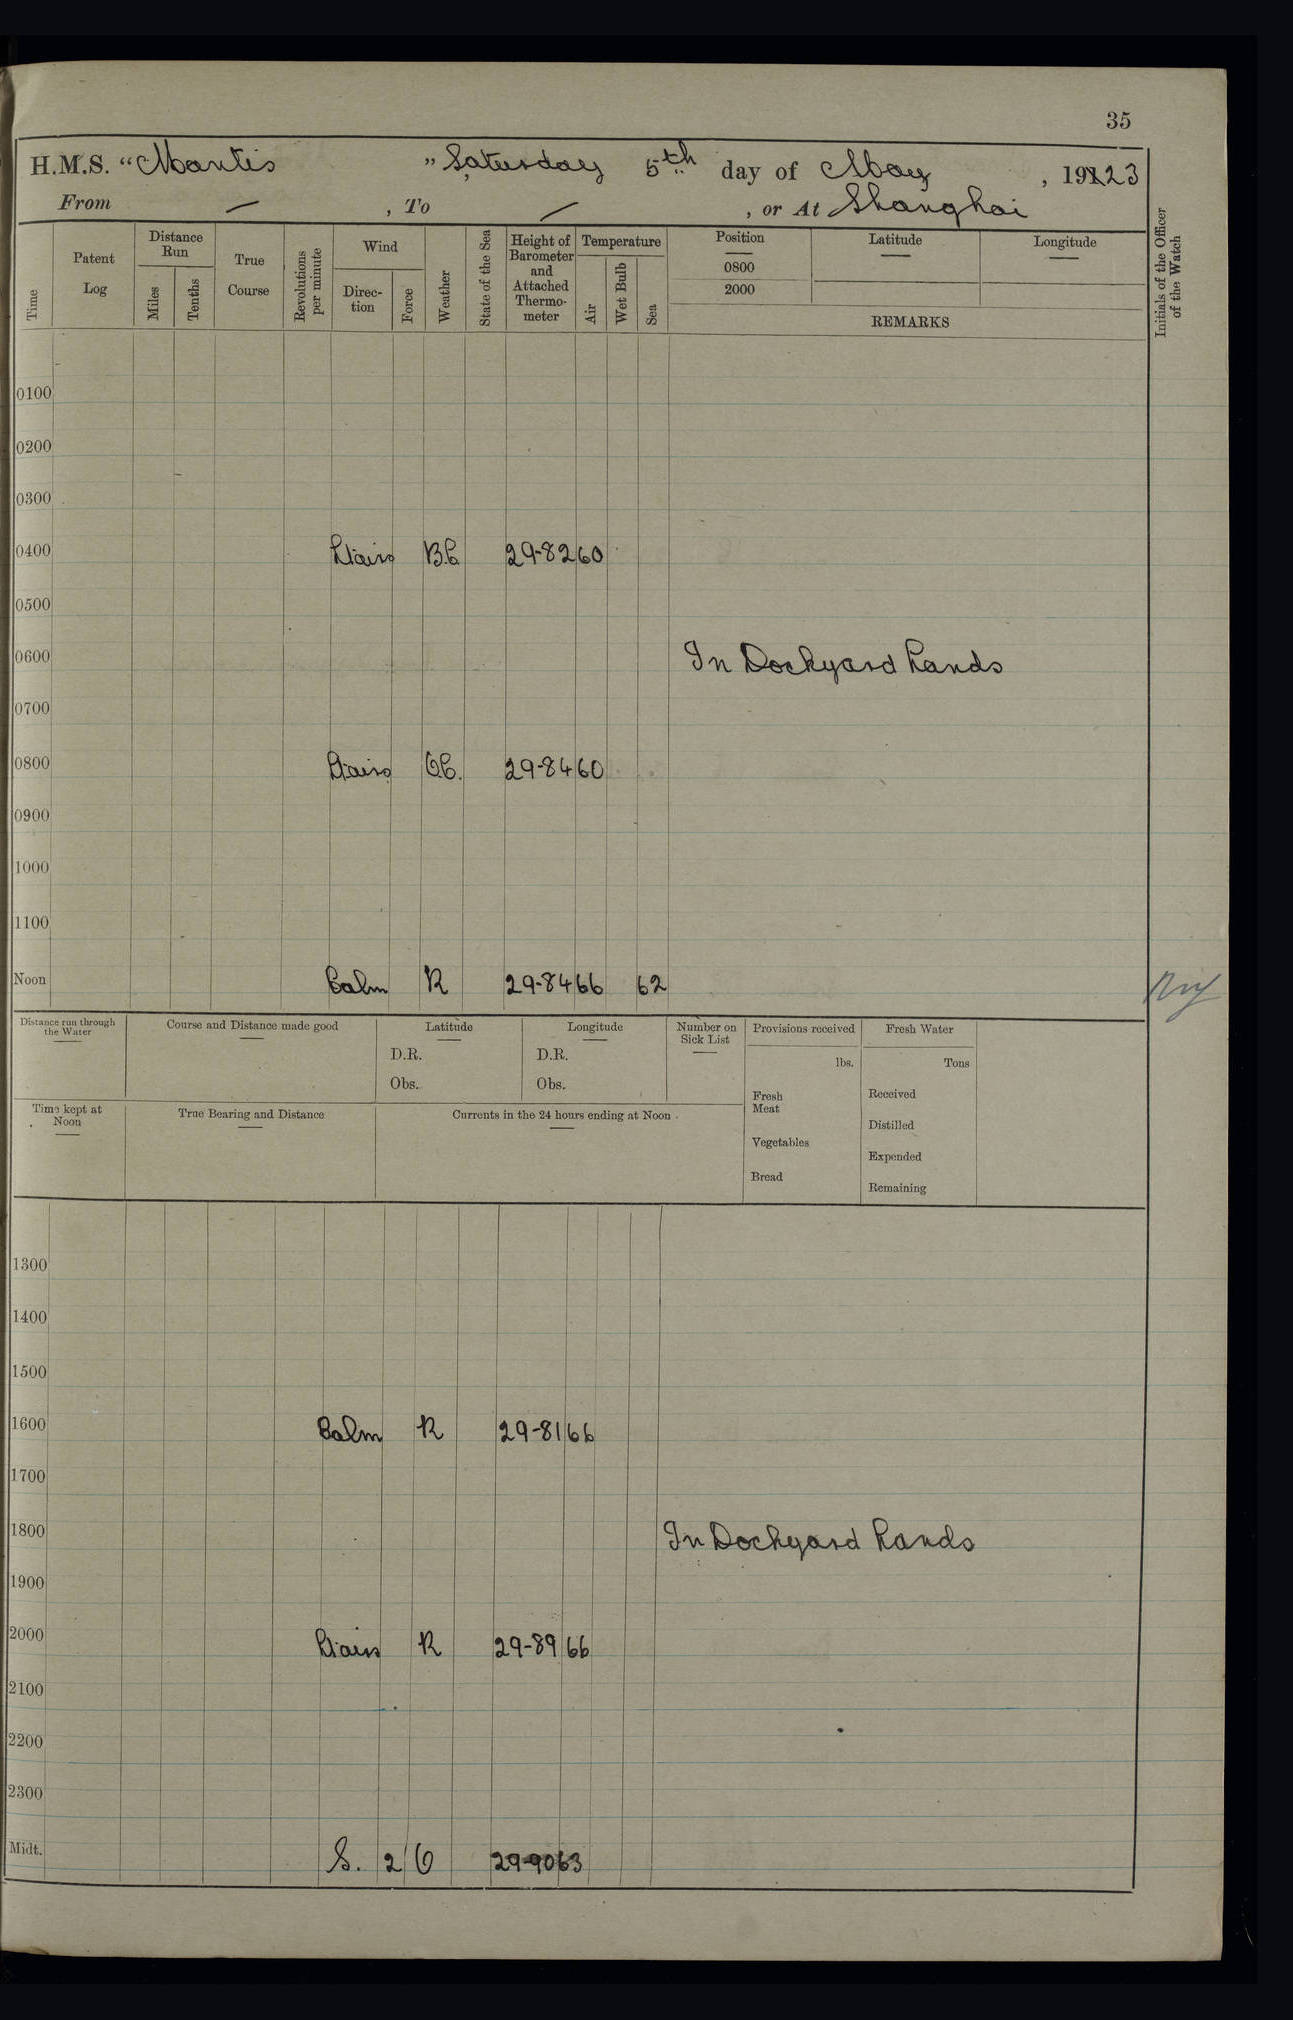 35
H.M.S. "Mantis" Saturday 5th day of May, 1923
From —, To —, or At Shanghai
Time
Patent Log
Distance Run
Miles
Tenths
True Course
Revolutions per minute
Wind
Direction
Force
Weather
State of the Sea
Height of Barometer and Attached Thermometer
Temperature
Air
Wet Bulb
Sea
Position
0800
2000
Latitude
Longitude
REMARKS
Initials of the Officer of the Watch
0100
0200
0300
0400 B.C. 29-82 60
0500
0600 In Dockyard hands
0700
0800 O.C. 29-84 60
0900
1000
1100
Noon Calm R 29-84 66 62
Distance run through the Water
Course and Distance made good
Latitude
D.R.
Obs.
Longitude
D.R.
Obs.
Number on Sick List
Provisions received
lbs.
Fresh Meat
Vegetables
Bread
Fresh Water
Tons
Received
Distilled
Expended
Remaining
Time kept at Noon
True Bearing and Distance
Currents in the 24 hours ending at Noon
1300
1400
1500
1600 Calm R 29-81 66
1700
1800 In Dockyard hands
1900
2000 R 29-89 66
2100
2200
2300
Midt. S. 2 O 29-90 63